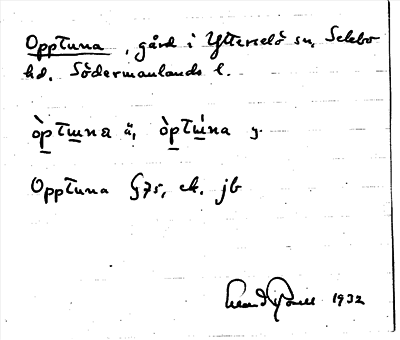 Opptuna, gård i Ytterselö sn, Selebo
hd. Södermanlands l.
òptɯna ä, òptɯ̀na y.
Opptuna G75, ek. jb
1932